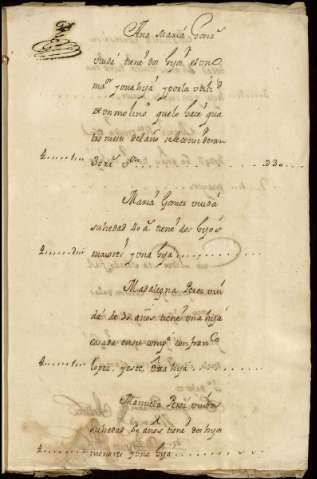 Ana Maria Gomz
viuda tiene dos hijos el uno
maor y una hija y por la utilid
de un molino que lo hace qua
tro meses del año se le consideran
330
Maria Gomez viuda
su hedad 40 as tiene dos hijos
maiores y una hija
Magdalegna Perez viu
da de 30 años tiene una hija
casada en su compa con franco
lopez y este otra hija
Manuela Perez viuda
su hedad años tiene dos hijos
menores y una hija